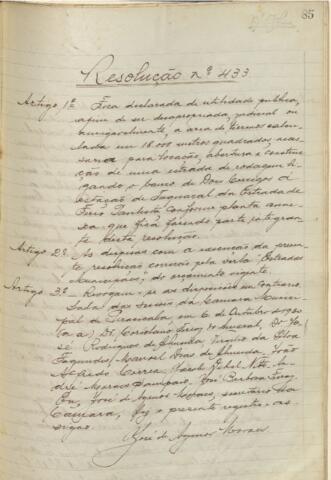 85
Resolução nº 433
Artigo 1º Fica declarada de utilidade publica,
afim de ser desapropriada, judicial ou
amigavelmente, a area de terreno calcu-
lada em 18.000 metros quadrados, neces-
saria para locação, abertura e constru-
cção de uma estrada de rodagem li-
gando o bairro de Dois Corregos á
estação de Taquaral da Estrada de
Ferro Paulista, conforme planta anne-
xa que fica fazendo parte integran-
te desta resolução.
Artigo 2º As despesas com a execução da presen-
te resolução correrão pela verba "Estradas
Municipaes", do orçamento vigente.
Artigo 3º Revogam-se as disposições em contrario.
Sala das sessões da Camara Munici-
pal de Piracicaba, em 6 de Outubro de 1920
(a a) Dr. Coriolano Ferraz do Amaral, Dr. Jo-
sé Rodrigues de Almeida, da Silva
Fagundes, Manoel Dias de Almeida, João
Alfredo Correa, Jacob Netto,
Sampaio, José Barbosa Ferraz
José de Moraes, secretario da
Camara, fiz o presente registro e as-
signo.
José de Moraes